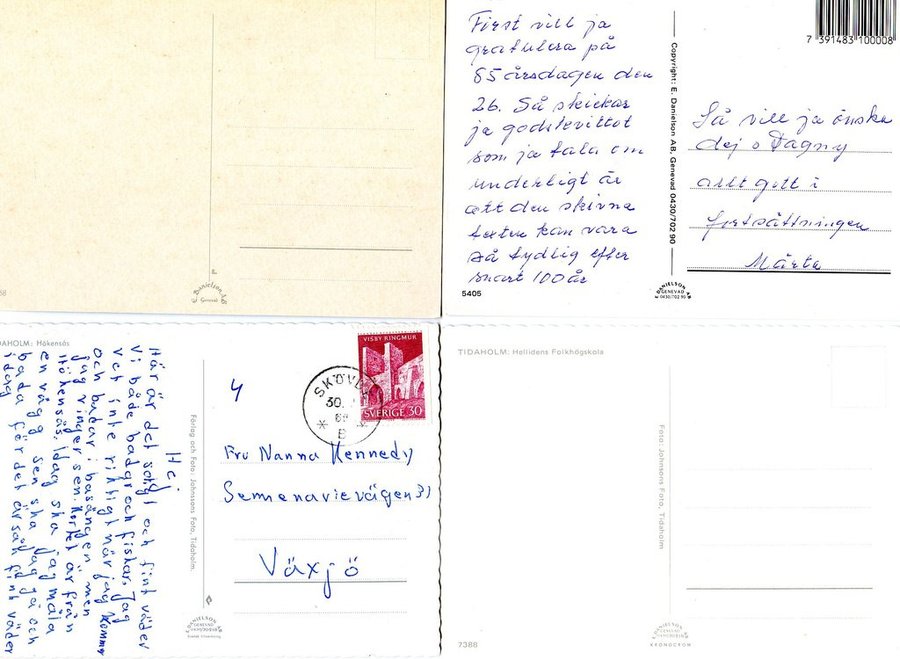 E. Danielson AB
Genevad
First vill ja
gratulera på
85 årsdagen den
26. Så skickar
ja
som ja tala om
underligt är
att den skrivna
texten kan vara
så tydlig efter
snart 100 år
5405
Copyright: E. Danielson AB, Genevad 0430/702 90
7 391483 100008
Så vill ja önska
dej o Dagny
allt gott i
fortsättningen
Märta
E. DANIELSON AB
GENEVAD
0430/702 90
DAHOLM: Hökensås
Hej
Här är det soligt och fint väder
vi både badar och fiskar. Jag
vet inte riktigt när jag kommer
och badar i basängen men
jag ringer sen. Kortet är från
Hökensås. Idag ska jag måla
en vägg sen ska jag gå och
bada för det är så fint väder
idag
Förlag och Foto: Johnsons Foto, Tidaholm.
E. DANIELSON AB
GENEVAD
VISBY RINGMUR
SVERIGE 30
SKÖVDE
30.
B
4
Fru Nanna Kennedy
Växjö
TIDAHOLM: Hellidens Folkhögskola
Foto: Johnsons Foto, Tidaholm
7386
E. DANIELSON AB
GENEVAD
KRONOCROM